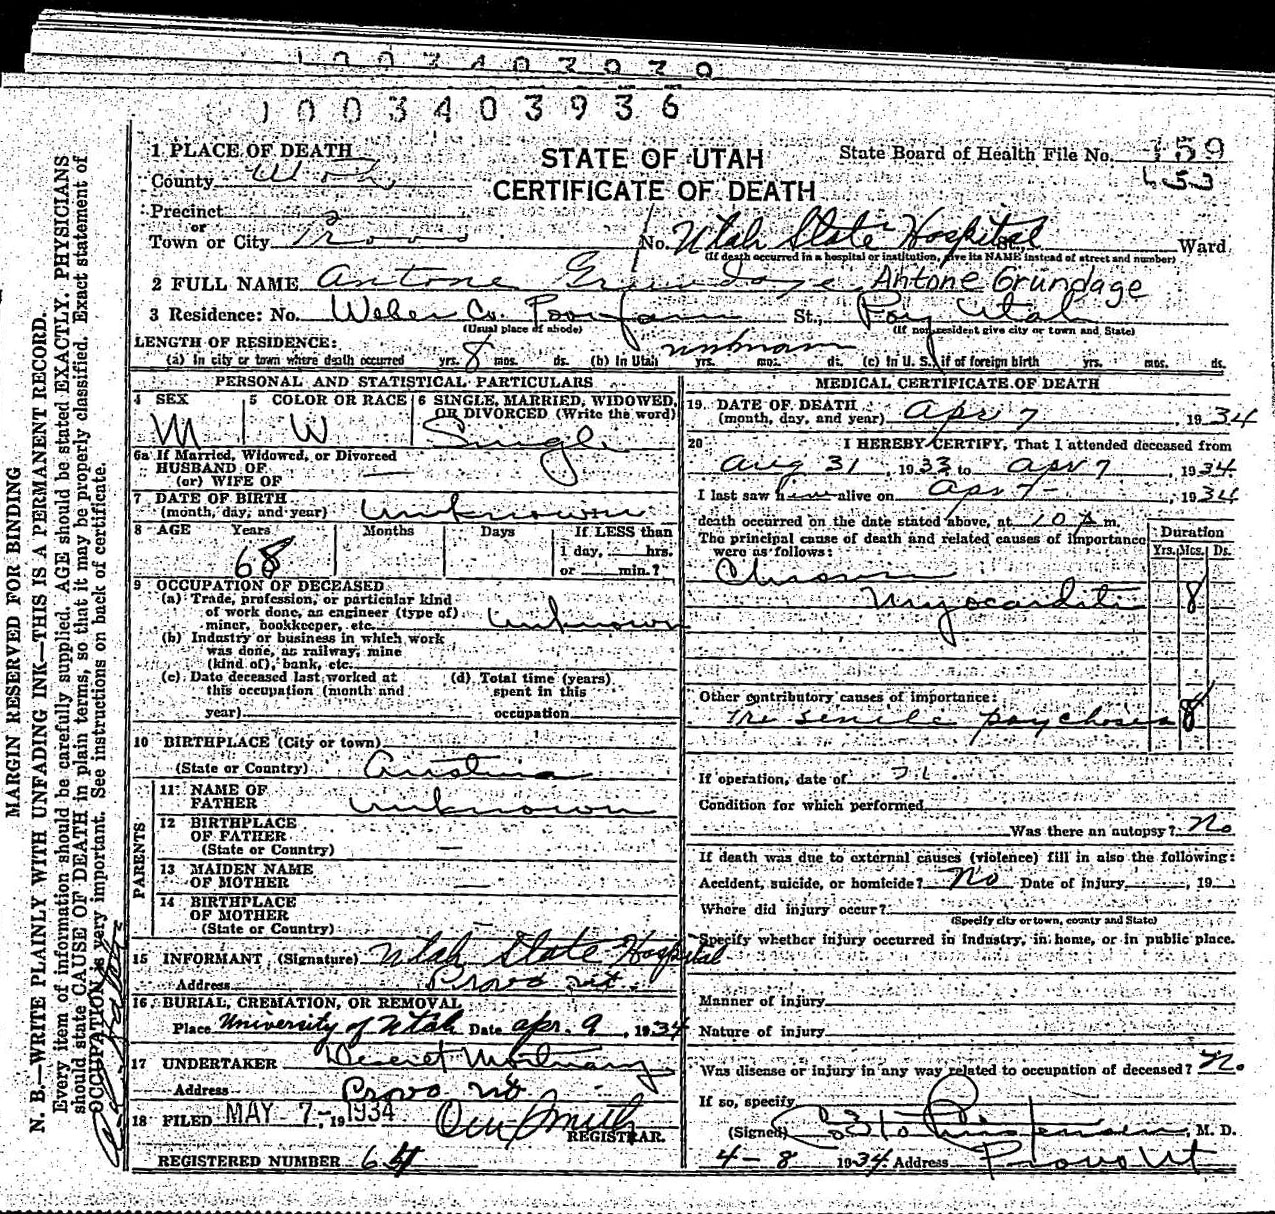 1003403936
1 PLACE OF DEATH
STATE OF UTAH
State Board of Health File No. 159
County Utah
CERTIFICATE OF DEATH
653
Precinct
or
Town or City Provo No. Utah State Hospital St. Ward
(If death occurred in a hospital or institution, give its NAME instead of street and number)
2 FULL NAME Antone Grundage Antone Grundage
3 Residence: No. Weber Co. Poor farm St., Roy Utah
(Usual place of abode) (If non resident give city or town and State)
LENGTH OF RESIDENCE:
(a) In city or town where death occurred yrs. 8 mos. ds. (b) In Utah unknown yrs. mos. ds. (c) In U. S. if of foreign birth yrs. mos. ds.
PERSONAL AND STATISTICAL PARTICULARS
4 SEX 5 COLOR OR RACE 6 SINGLE, MARRIED, WIDOWED, OR DIVORCED (Write the word)
M W Single
6a If Married, Widowed, or Divorced
HUSBAND OF
(or) WIFE OF
7 DATE OF BIRTH
(month, day, and year) unknown
8 AGE Years Months Days If LESS than
68 1 day, hrs.
or min.?
9 OCCUPATION OF DECEASED
(a) Trade, profession, or particular kind
of work done, as engineer (type of)
miner, bookkeeper, etc. unknown
(b) Industry or business in which work
was done, as railway, mine
(kind of), bank, etc.
(c) Date deceased last worked at
this occupation (month and
year)
(d) Total time (years)
spent in this
occupation
10 BIRTHPLACE (City or town)
(State or Country) Austria
PARENTS
11 NAME OF
FATHER unknown
12 BIRTHPLACE
OF FATHER
(State or Country) —
13 MAIDEN NAME
OF MOTHER —
14 BIRTHPLACE
OF MOTHER
(State or Country) —
15 INFORMANT (Signature) Utah State Hospital
Address Provo Ut.
16 BURIAL, CREMATION, OR REMOVAL
Place University of Utah Date Apr. 9, 1934
17 UNDERTAKER Deseret Mortuary
Address Provo
18 FILED MAY 7-, 1934
REGISTRAR.
REGISTERED NUMBER 64
MEDICAL CERTIFICATE OF DEATH
19. DATE OF DEATH
(month, day, and year) Apr 7 1934
20 I HEREBY CERTIFY, That I attended deceased from
Aug 31, 1933 to Apr 7, 1934.
I last saw him alive on Apr 7-, 1934
death occurred on the date stated above, at 10 m.
The principal cause of death and related causes of importance
were as follows:
Duration
Yrs. Mos. Ds.
Chronic
Myocarditis 8
Other contributory causes of importance:
senile psychosis 8
If operation, date of
Condition for which performed
Was there an autopsy? No
If death was due to external causes (violence) fill in also the following:
Accident, suicide, or homicide? No Date of injury , 19
Where did injury occur?
(Specify city or town, county and State)
Specify whether injury occurred in industry, in home, or in public place.
Manner of injury
Nature of injury
Was disease or injury in any way related to occupation of deceased? No.
If so, specify
(Signed) Christensen, M. D.
4-8 1934 Address Provo Ut
MARGIN RESERVED FOR BINDING
N. B.—WRITE PLAINLY WITH UNFADING INK—THIS IS A PERMANENT RECORD.
Every item of information should be carefully supplied. AGE should be stated EXACTLY. PHYSICIANS
should state CAUSE OF DEATH in plain terms, so that it may be properly classified. Exact statement of
OCCUPATION is very important. See instructions on back of certificate.